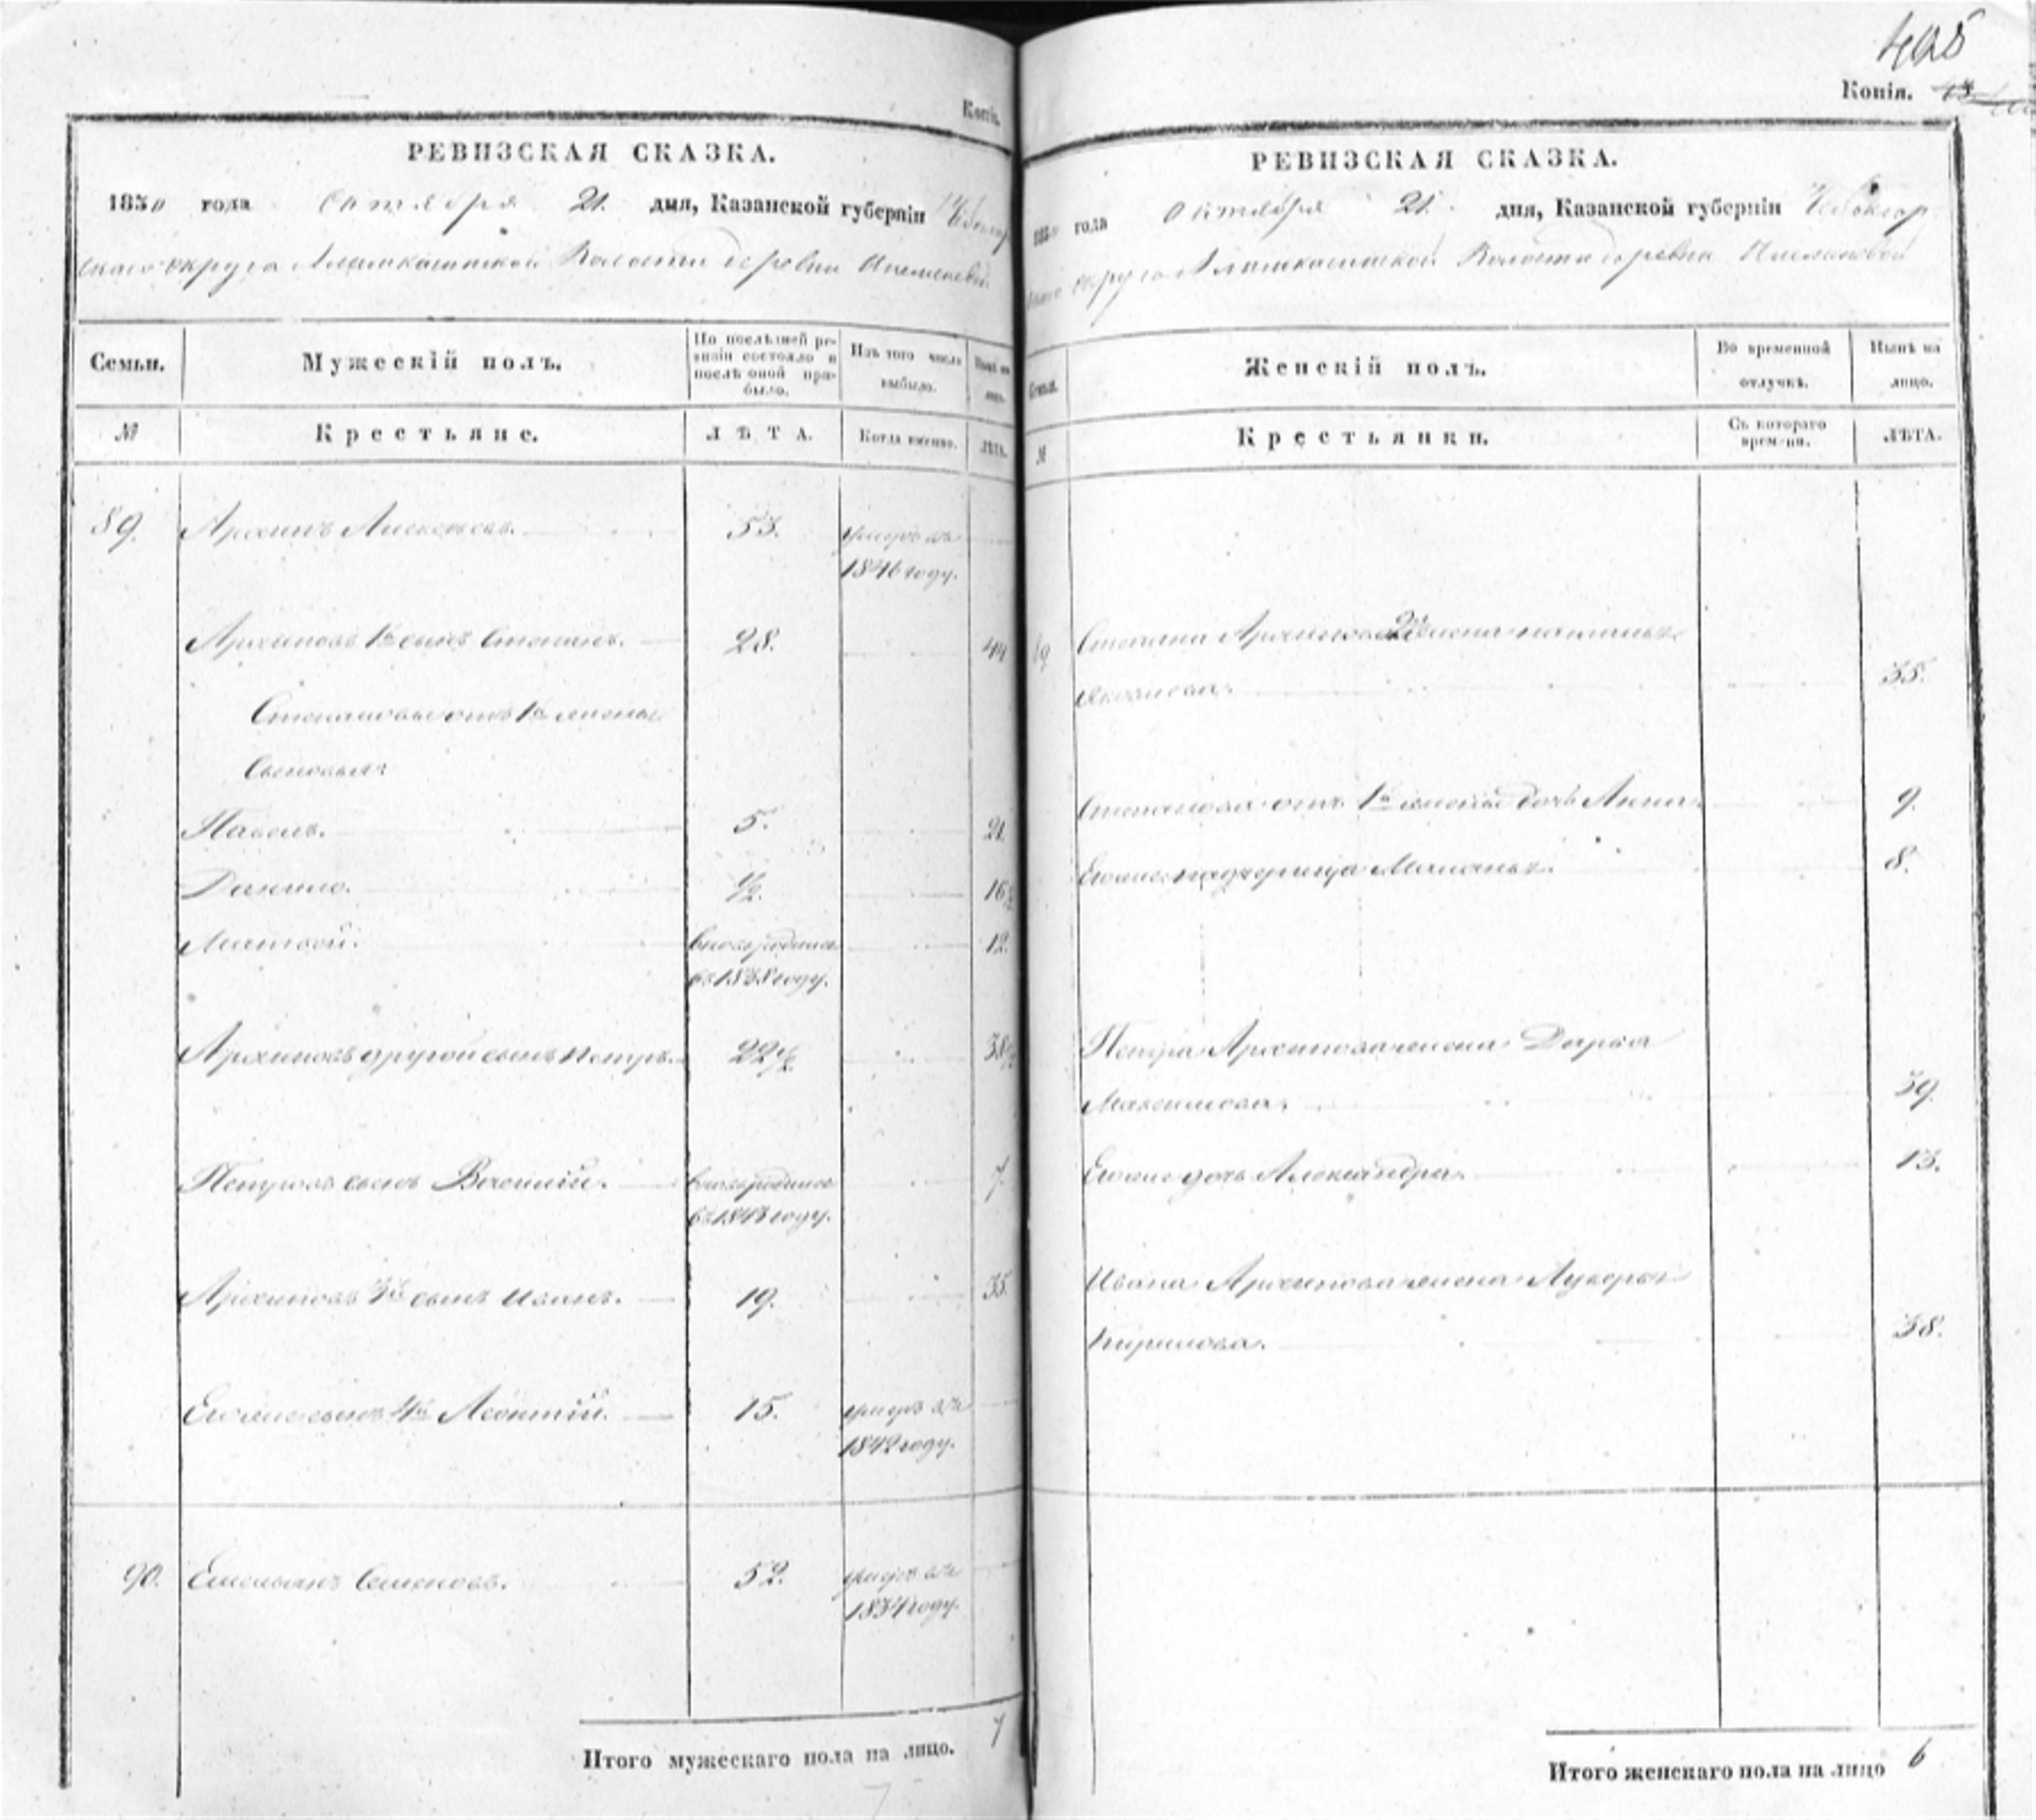 Копія.
РЕВИЗСКАЯ СКАЗКА.
1850 года Октября 21. дня, Казанской губерніи Чебоксар
скаго округа Волости деревни
Семьи.
Мужескій полъ.
По послѣдней ре-
визіи состояло и
послѣ оной при-
было.
Изъ того числа
выбыло.
Нынѣ на
лицо.
№
Крестьяне.
ЛѢТА.
Когда именно.
ЛѢТА.
89. Архипъ Алексѣевъ. 53. умеръ въ
1846 году.
Архиповъ 1й сынъ Степанъ. 28. 44
Степановы отъ 1й жены
Сыновья:
Павелъ. 5. 21.
Данило. ½. 16½
Матвей. вновь родился 12.
въ 1838 году.
Архиповъ другой сынъ Петръ. 22½. 38½
Петровъ сынъ Василій. вновь родился 7.
въ 1843 году.
Архиповъ 3й сынъ Иванъ. 19. 35.
Его же сынъ 4й Леонтій. 15. умеръ въ
1842 году.
90. Емельянъ Семеновъ. 52. умеръ въ
1834 году.
Итого мужескаго пола на лицо. 7
405
Копія.
РЕВИЗСКАЯ СКАЗКА.
1850 года Октября 21. дня, Казанской губерніи Чебоксар
скаго округа Волости деревни
Семьи.
Женскій полъ.
Во временной
отлучкѣ.
Нынѣ на
лицо.
№
Крестьянки.
Съ котораго
времени.
ЛѢТА.
89 Степана Архипова 2я жена Наталья
Яковлева. 35.
Степанова отъ 1й жены дочь Анна. 9.
Его же падчерица Маланья. 8.
Петра Архипова жена Дарья
Максимова. 39.
Его же дочь Александра. 13.
Ивана Архипова жена Лукерья
Кирилова. 38.
Итого женскаго пола на лицо 6